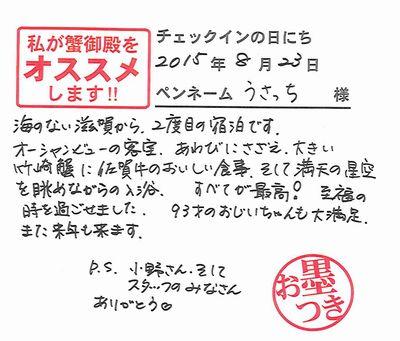 私が蟹御殿を
オススメ
します!!
チェックインの日にち
2015年8月23日
ペンネーム うさっち 様
海のない滋賀から、2度目の宿泊です。
オーシャンビューの客室、あわびにさざえ、大きい
竹崎蟹に佐賀牛のおいしい食事、そして満天の星空
を眺めながらの入浴。すべてが最高! 至福の
時を過ごせました。93才のおじいちゃんも大満足。
また来年も来ます。
P.S. 小野さん、そして
スタッフのみなさん
ありがとう♡
お墨つき